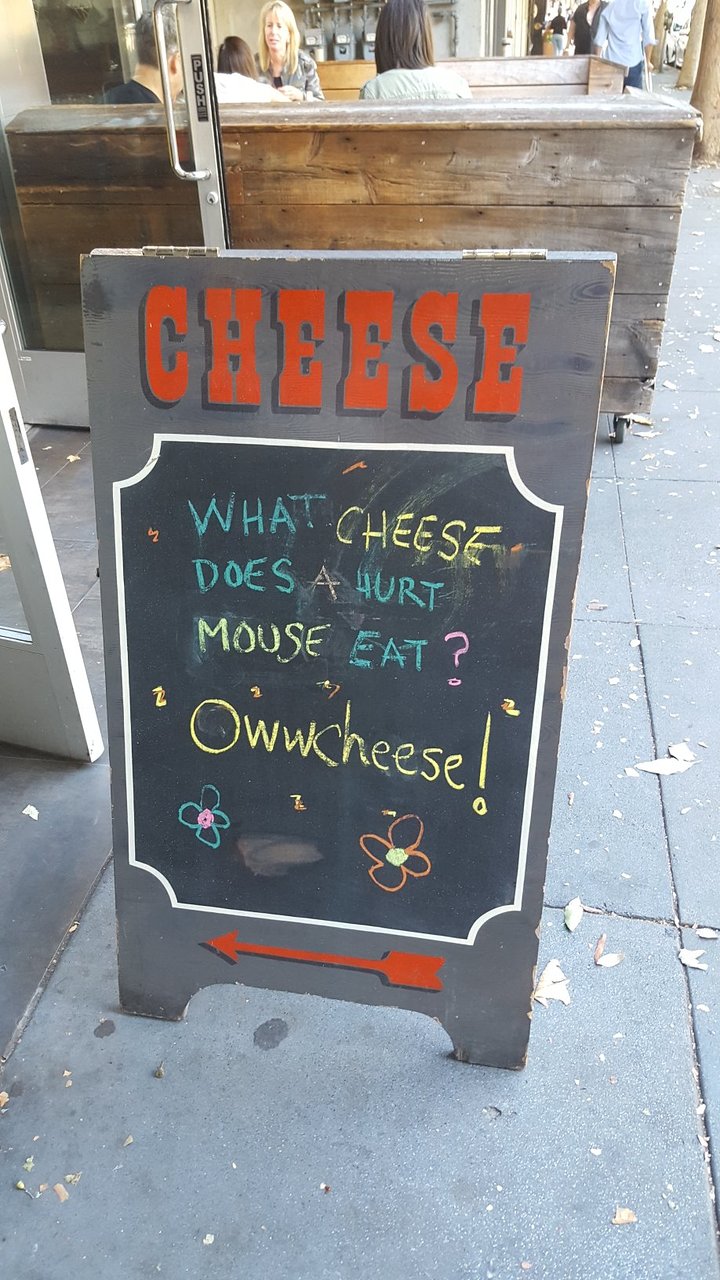 PUSH
CHEESE
WHAT CHEESE
DOES A HURT
MOUSE EAT?
Owwcheese!